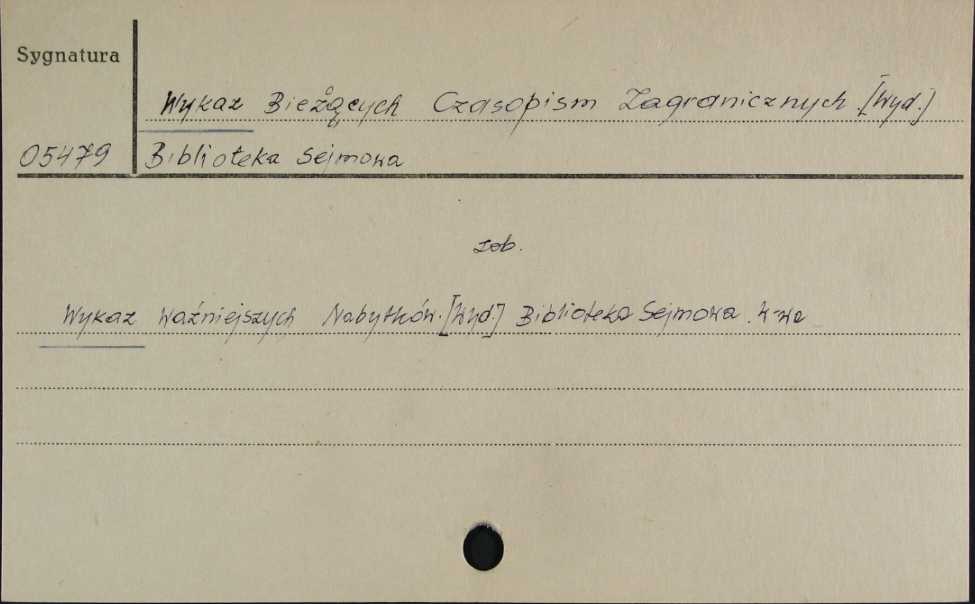 Sygnatura
Wykaz Bieżących Czasopism Zagranicznych [Wyd.]
05479 Biblioteka Sejmowa
zob.
Wykaz Ważniejszych Nabytków. [Wyd.] Biblioteka Sejmowa. W-wa